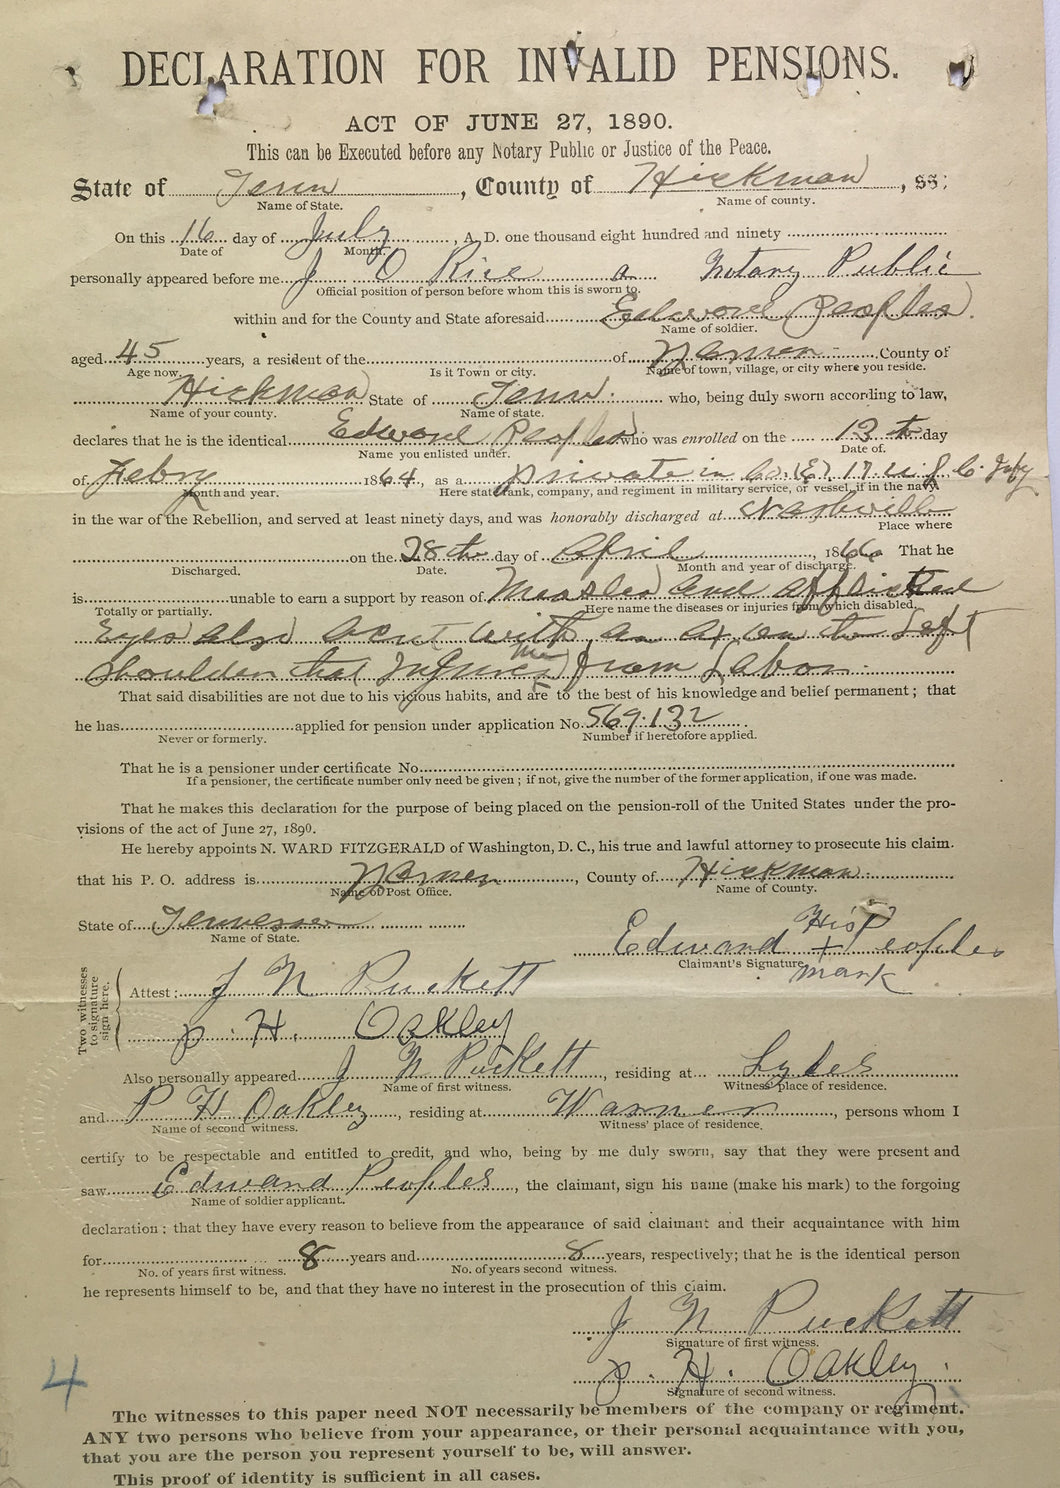 DECLARATION FOR INVALID PENSIONS.
ACT OF JUNE 27, 1890.
This can be Executed before any Notary Public or Justice of the Peace.
State of Tenn, County of Hickman, ss:
Name of State. Name of county.
On this 16 day of July, A. D. one thousand eight hundred and ninety
Date of Month.
personally appeared before me J O Rice a Notary Public
Official position of person before whom this is sworn to.
within and for the County and State aforesaid Edward Peoples.
Name of soldier.
aged 45 years, a resident of the of Warner County of
Age now. Is it Town or city. Name of town, village, or city where you reside.
Hickman State of Tenn. who, being duly sworn according to law,
Name of your county. Name of state.
declares that he is the identical Edward Peoples who was enrolled on the 13th day
Name you enlisted under. Date of.
of Febry 1864, as a private in Co. (E) 17. U S C. Infy
Month and year. Here state rank, company, and regiment in military service, or vessel, if in the navy
in the war of the Rebellion, and served at least ninety days, and was honorably discharged at Nashville
Place where
on the 28th day of April, 1866 That he
Discharged. Date. Month and year of discharge.
is unable to earn a support by reason of Measles and afflicted
Totally or partially. Here name the diseases or injuries from which disabled.
Eyes also a cut with an ax on the Left
Shoulder that Injures me from Labor.
That said disabilities are not due to his vicious habits, and are to the best of his knowledge and belief permanent; that
he has applied for pension under application No. 569.132.
Never or formerly. Number if heretofore applied.
That he is a pensioner under certificate No.
If a pensioner, the certificate number only need be given; if not, give the number of the former application, if one was made.
That he makes this declaration for the purpose of being placed on the pension-roll of the United States under the pro-
visions of the act of June 27, 1890.
He hereby appoints N. WARD FITZGERALD of Washington, D. C., his true and lawful attorney to prosecute his claim.
that his P. O. address is Warner, County of Hickman
Name of Post Office. Name of County.
State of Tennessee
Name of State.
His
Edward + Peoples
Claimant's Signature. mark
Two witnesses to signature sign here.
Attest: J N Puckett
P. H. Oakley
Also personally appeared J N Puckett, residing at Lyles
Name of first witness. Witness' place of residence.
and P H Oakley, residing at Warner, persons whom I
Name of second witness. Witness' place of residence.
certify to be respectable and entitled to credit, and who, being by me duly sworn, say that they were present and
saw Edward Peoples, the claimant, sign his name (make his mark) to the forgoing
Name of soldier applicant.
declaration; that they have every reason to believe from the appearance of said claimant and their acquaintance with him
for 8 years and 8 years, respectively; that he is the identical person
No. of years first witness. No. of years second witness.
he represents himself to be, and that they have no interest in the prosecution of this claim.
J N Puckett
Signature of first witness.
P. H. Oakley.
Signature of second witness.
4
The witnesses to this paper need NOT necessarily be members of the company or regiment.
ANY two persons who believe from your appearance, or their personal acquaintance with you,
that you are the person you represent yourself to be, will answer.
This proof of identity is sufficient in all cases.